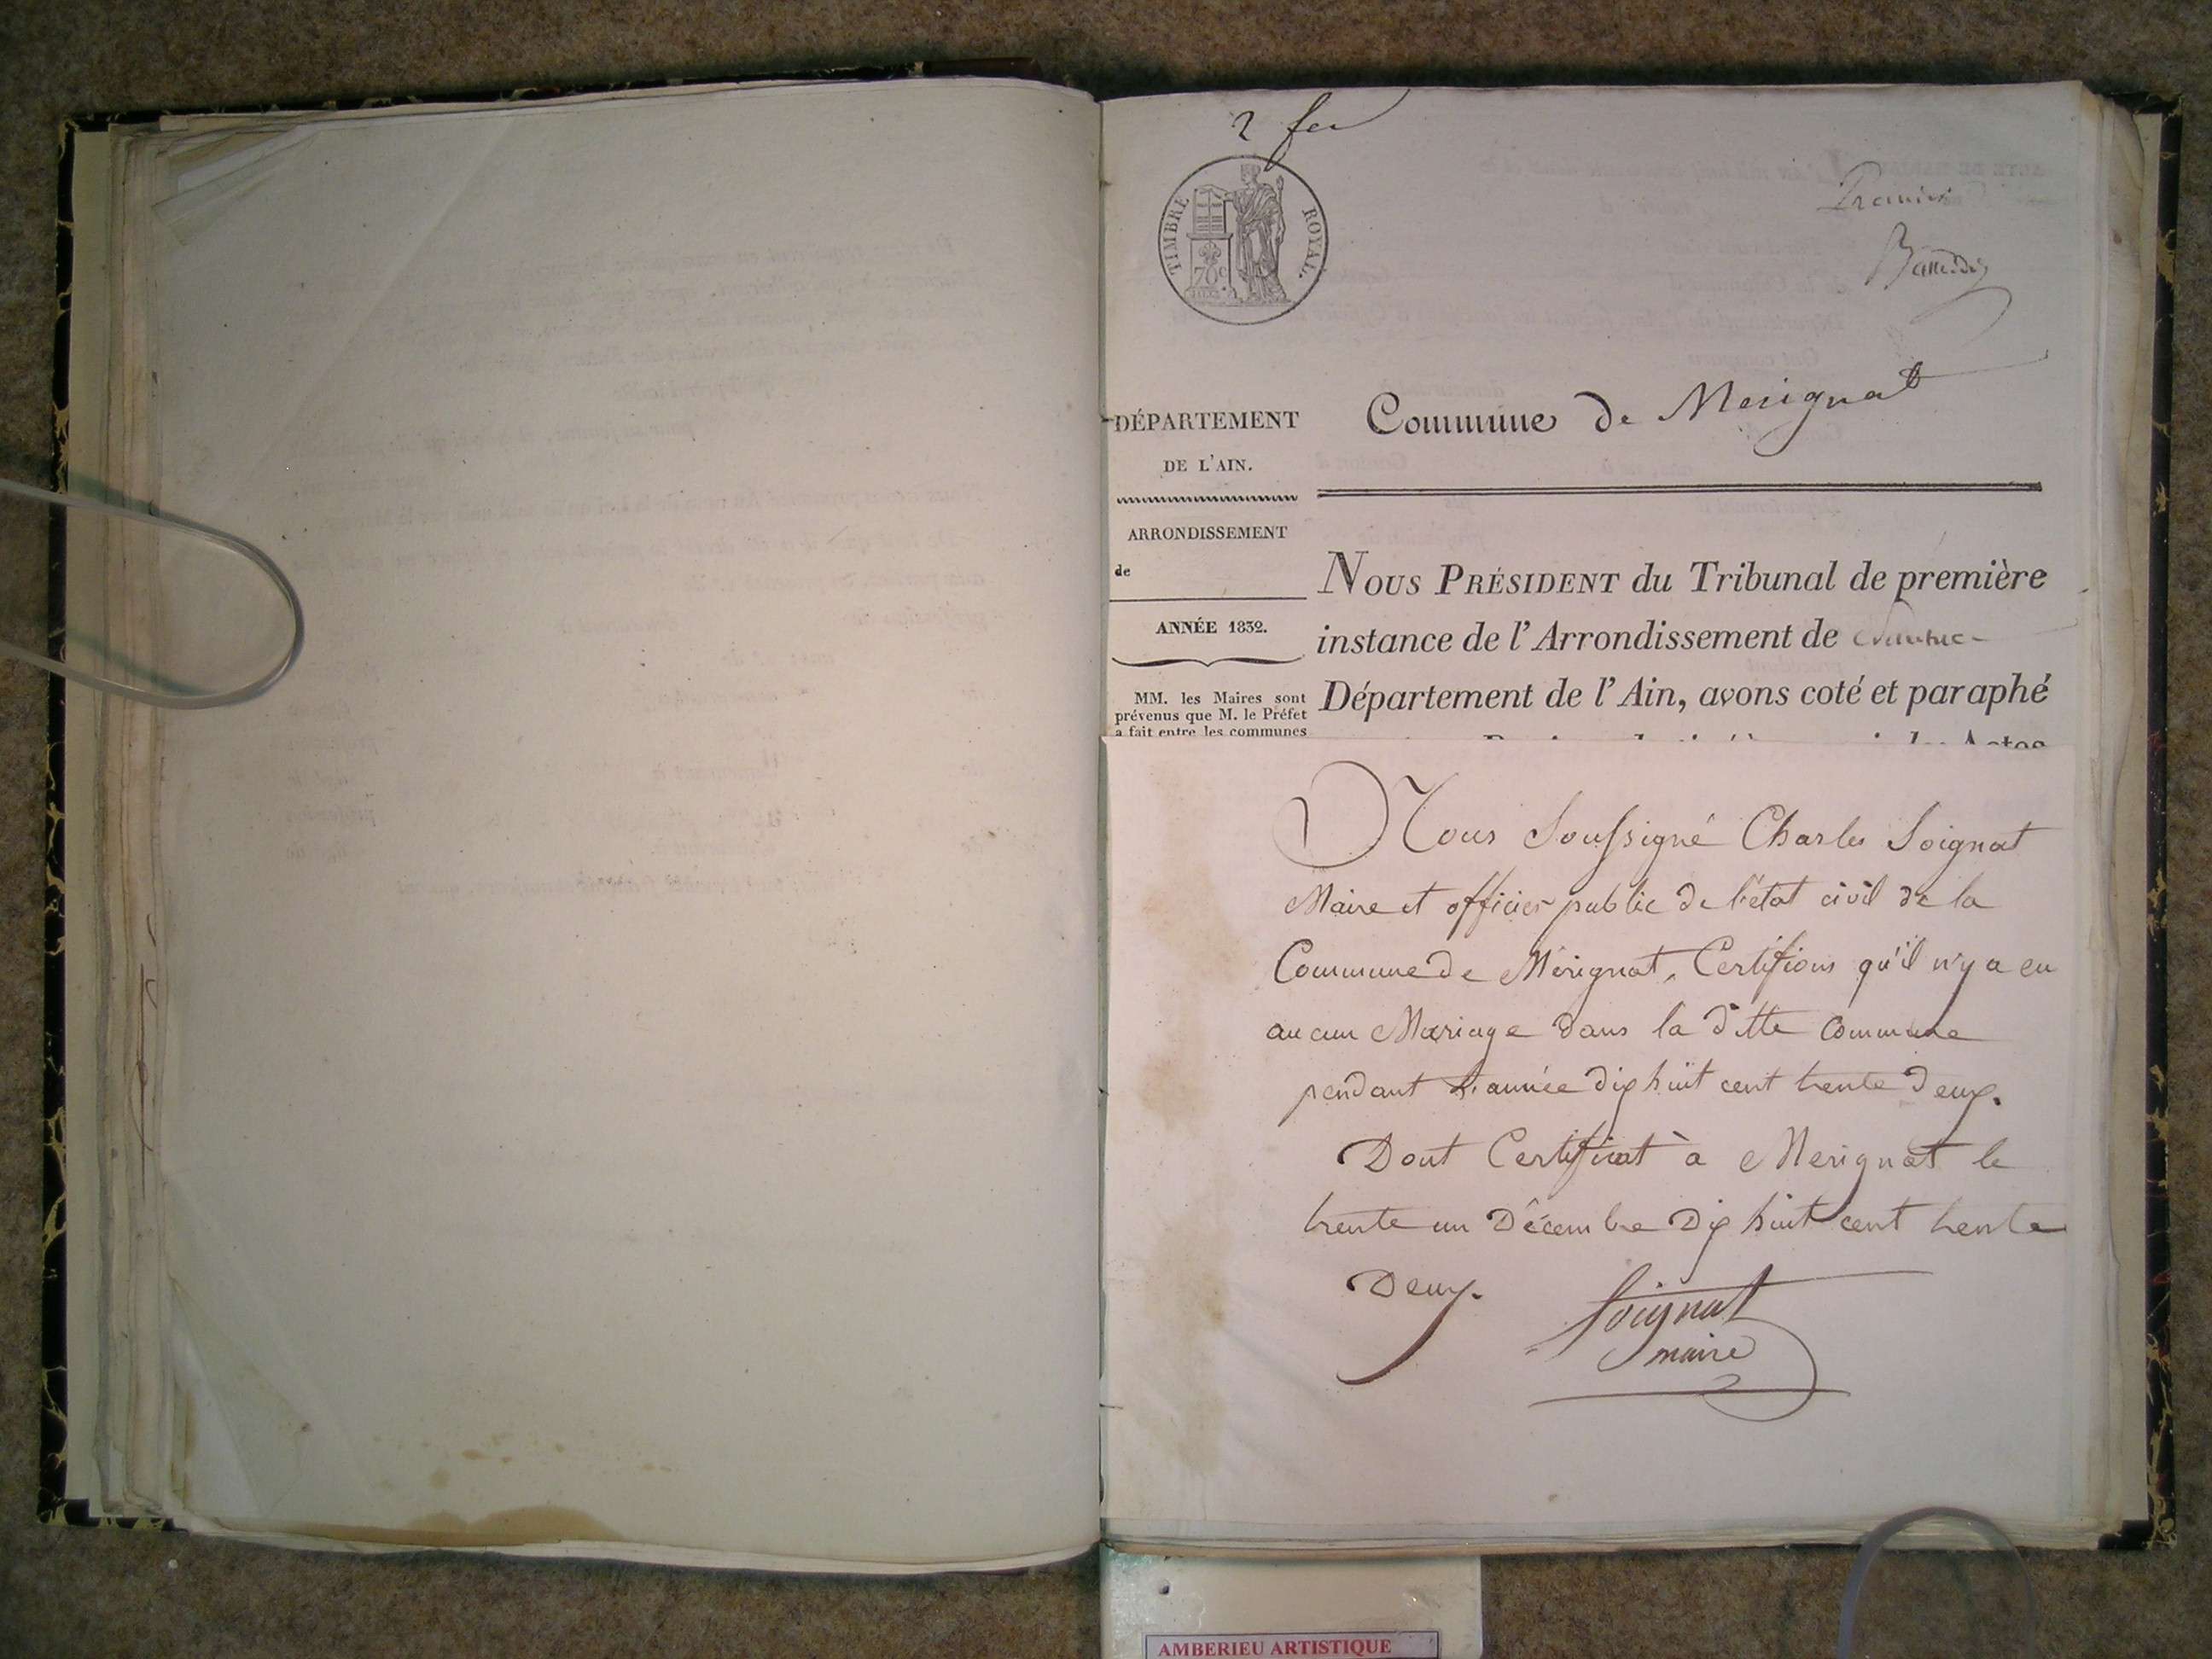 2 fer
TIMBRE ROYAL.
70c
Premier
DÉPARTEMENT
DE L'AIN.
Commune de Merignat
ARRONDISSEMENT
de
ANNÉE 1832.
MM. les Maires sont
prévenus que M. le Préfet
a fait entre les communes
NOUS PRÉSIDENT du Tribunal de première
instance de l'Arrondissement de Nantua
Département de l'Ain, avons coté et paraphé
Nous Soussigné Charles Soignat
Maire et officier public de l'état civil de la
Commune de Mérignat, Certifions qu'il n'y a eu
aucun Mariage dans la ditte Commune
pendant L'année dix huit cent trente Deux.
Dont Certificat à Merignat le
trente un Décembre Dix huit cent trente
Deux.
Soignat
maire
AMBERIEU ARTISTIQUE